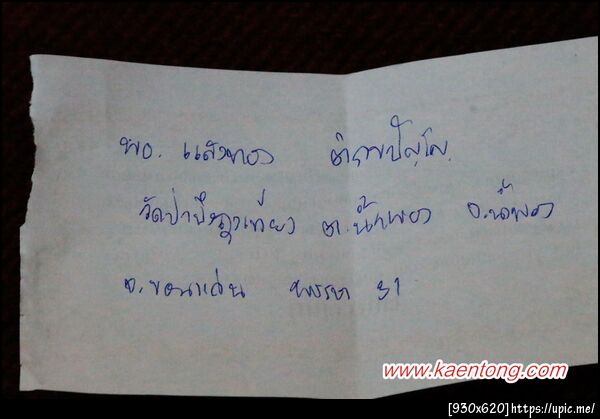 พอ. แสงทอง ติกฺขปัญฺโญ
วัดป่าบึง ต.น้ำพอง อ.น้ำพอง
จ.ขอนแก่น พรรษา 31
www.kaentong.com
[930x620]https://upic.me/